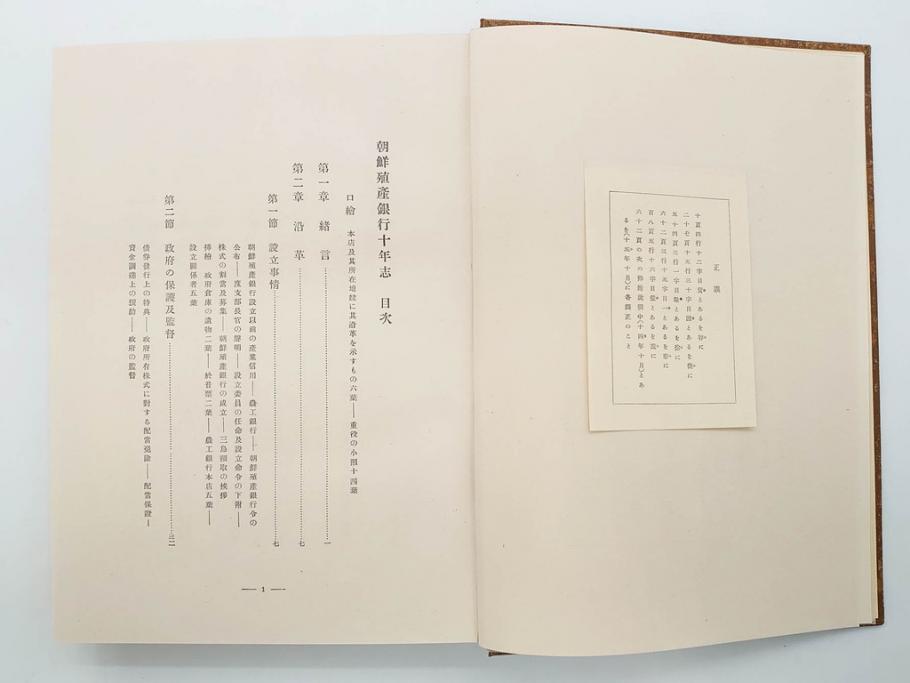 正誤
十頁四行十二字目とあるをに
二十七頁十五行三十字目とあるをに
五十四頁三行一字目とあるをに
六十二頁三行十五字目一とあるをに
百八頁五行十六字目とあるをに
六十二頁の次の中(十四年十月)とあ
るを(十五年十月)に各訂正のこと
朝鮮殖產銀行十年志 目次
口繪 本店及其所在地に其沿革を示すもの六葉——重役の小照十四葉
第一章 緒言……一
第二章 沿革……七
第一節 設立事情……七
朝鮮殖產銀行設立以前の產業信用——農工銀行——朝鮮殖產銀行令の
公布——度支部長官の聲明——設立委員の任命及設立命令の下附——
株式の割當及募集——朝鮮殖產銀行の成立——三島頭取の挨拶
揷繪 政府倉庫の遺物二葉——於音票二葉——農工銀行本店五葉——
設立關係者五葉
第二節 政府の保護及監督……三二
債券發行上の特典——政府所有株式に對する配當免除——配當保證—
資金調達上の援助——政府の監督
— 1 —